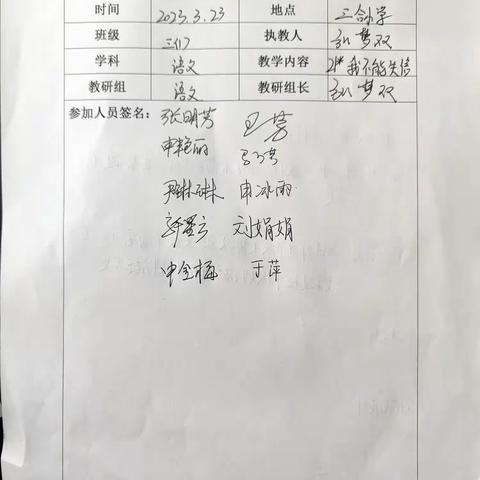 时间 2023.3.23 地点 三合小学
班级 三(1) 执教人 梦双
学科 语文 教学内容 21*我不能失信
教研组 语文 教研组长 梦双
参加人员签名：张明芳 王芳
申艳丽
琳琳 申冰雨
刘娟娟
申金梅 于萍